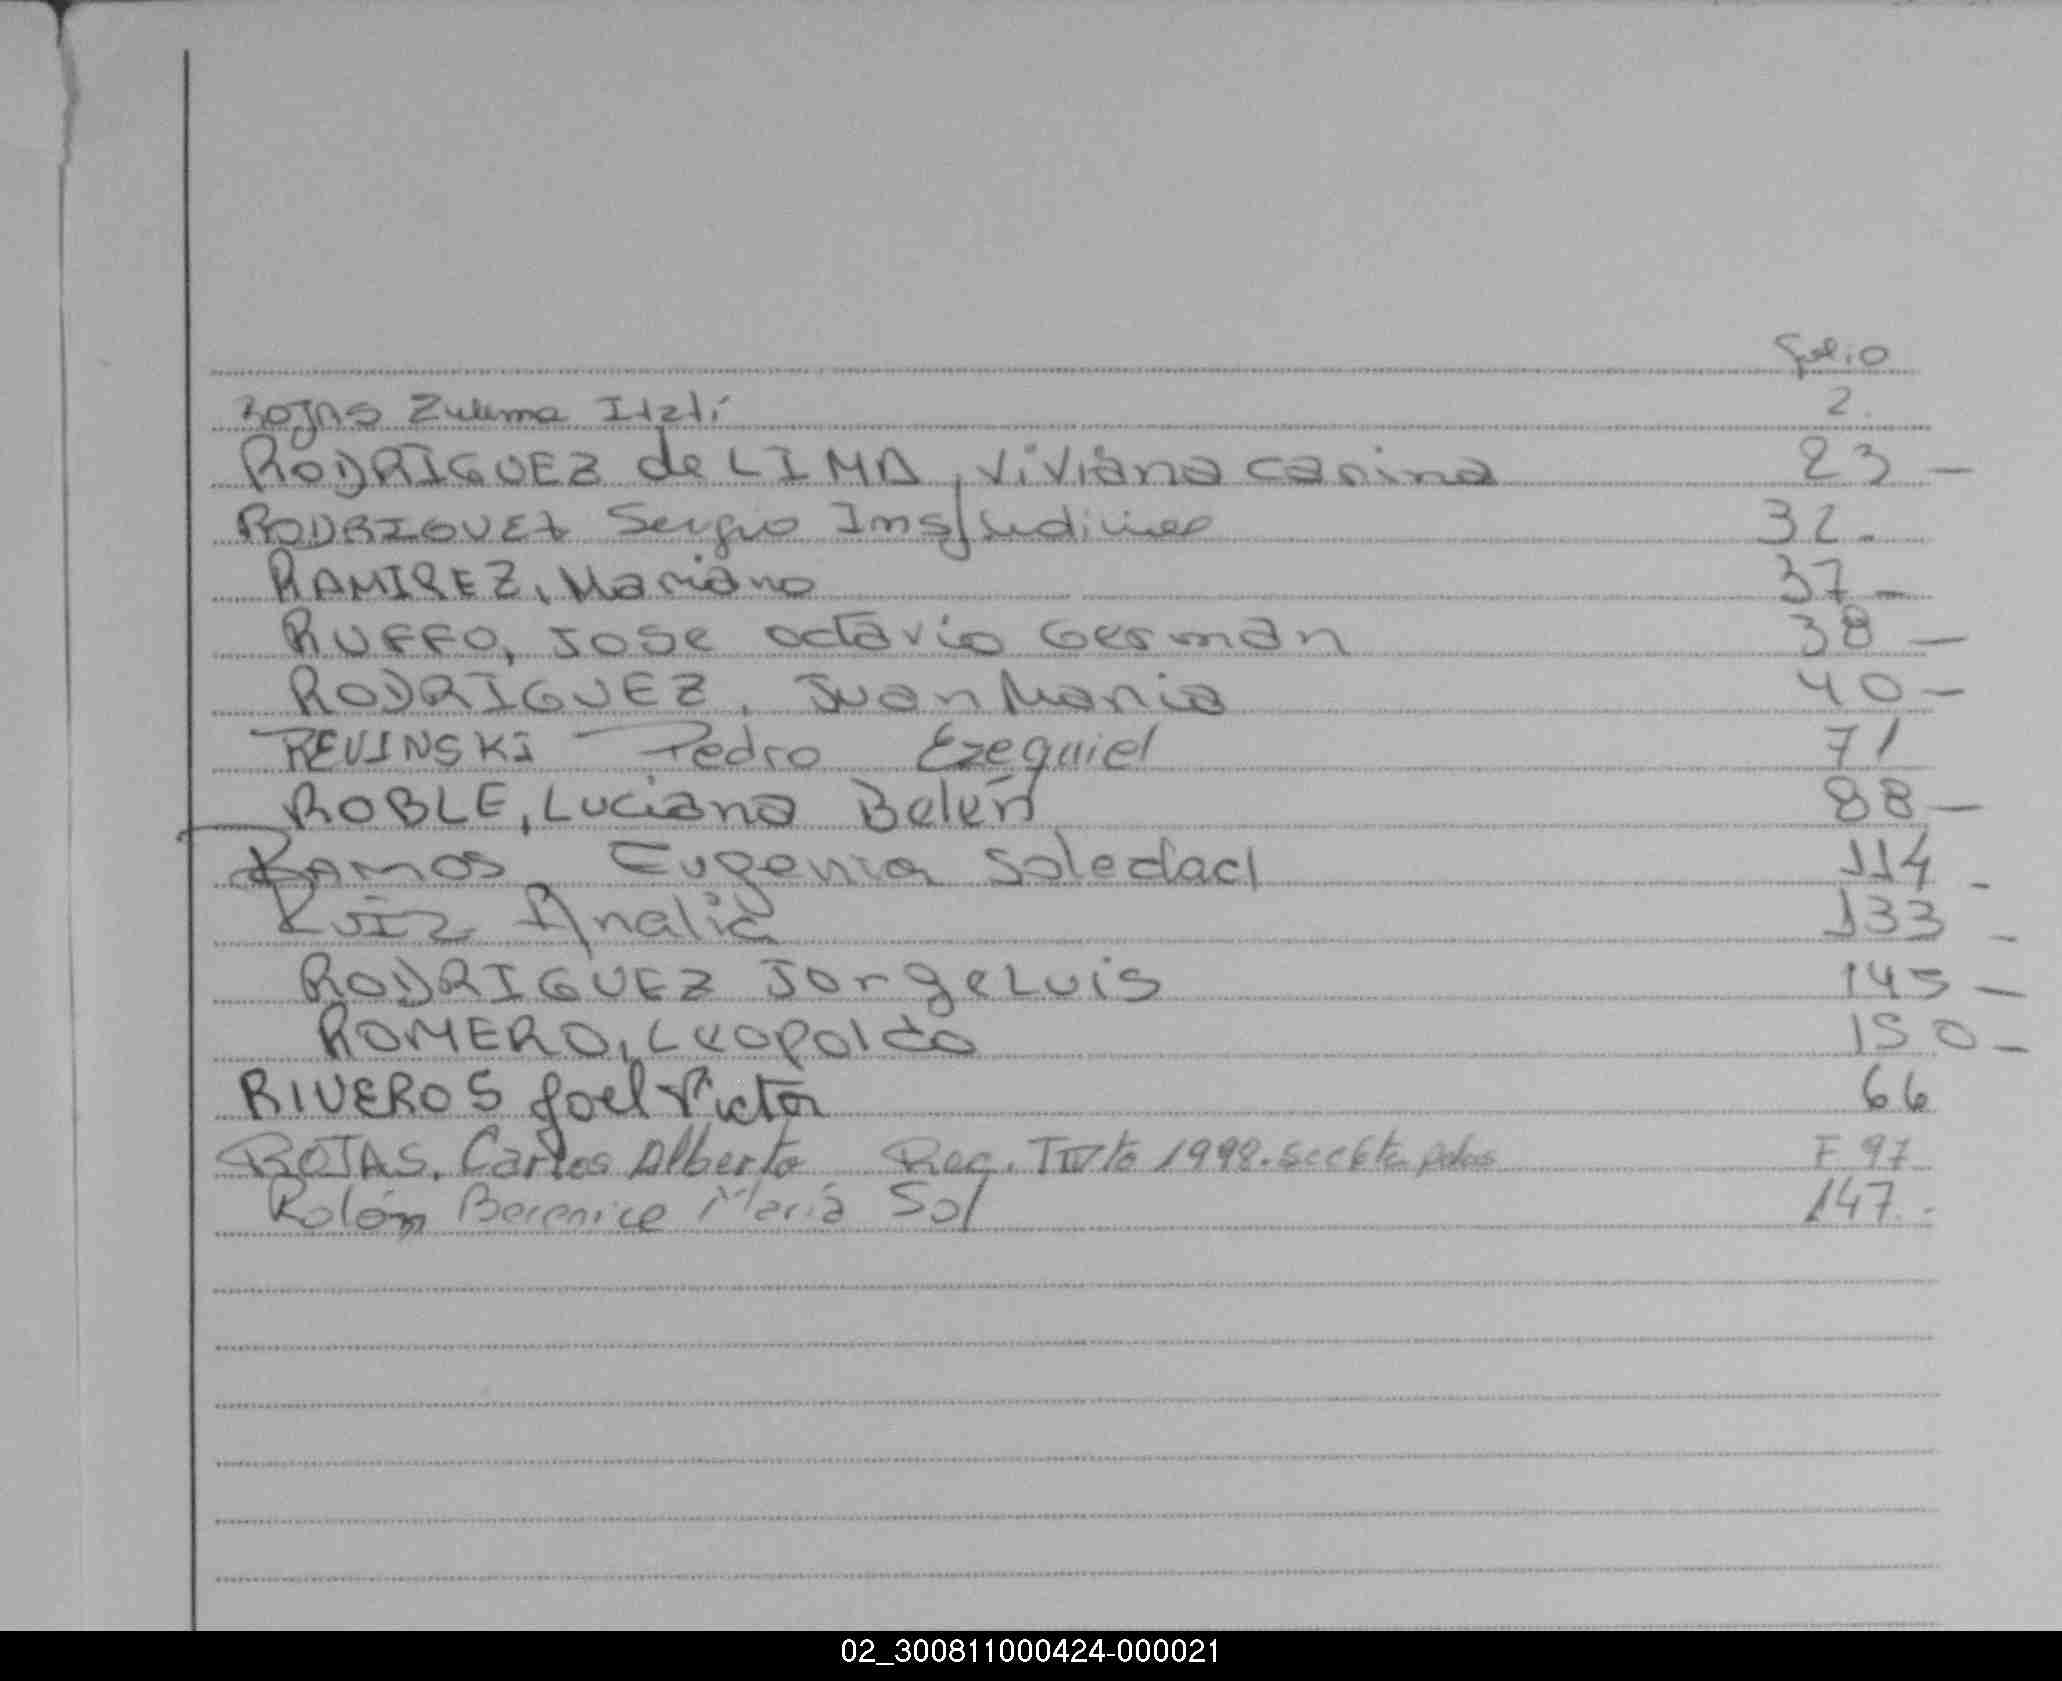 Folio
ROJAS Zulema Itatí 2.
RODRIGUEZ de LIMA, Viviana Carina 23 —
RODRIGUEZ Sergio Ins/Judicial 32.
RAMIREZ, Mariano 37 —
RUFFO, Jose Octavio German 38 —
RODRIGUEZ, Juan Maria 40 —
REVINSKI Pedro Ezequiel 71
ROBLE, Luciana Belén 88 —
RAMOS Eugenia Soledad 114 -
Ruiz Analia 133 -
RODRIGUEZ Jorge Luis 145 —
ROMERO, Leopoldo 150 —
RIVEROS Joel Victor 66
ROJAS. Carlos Alberto Rec. 1998. F 97
Rolón Berenice María Sol 147.-
02_300811000424-000021